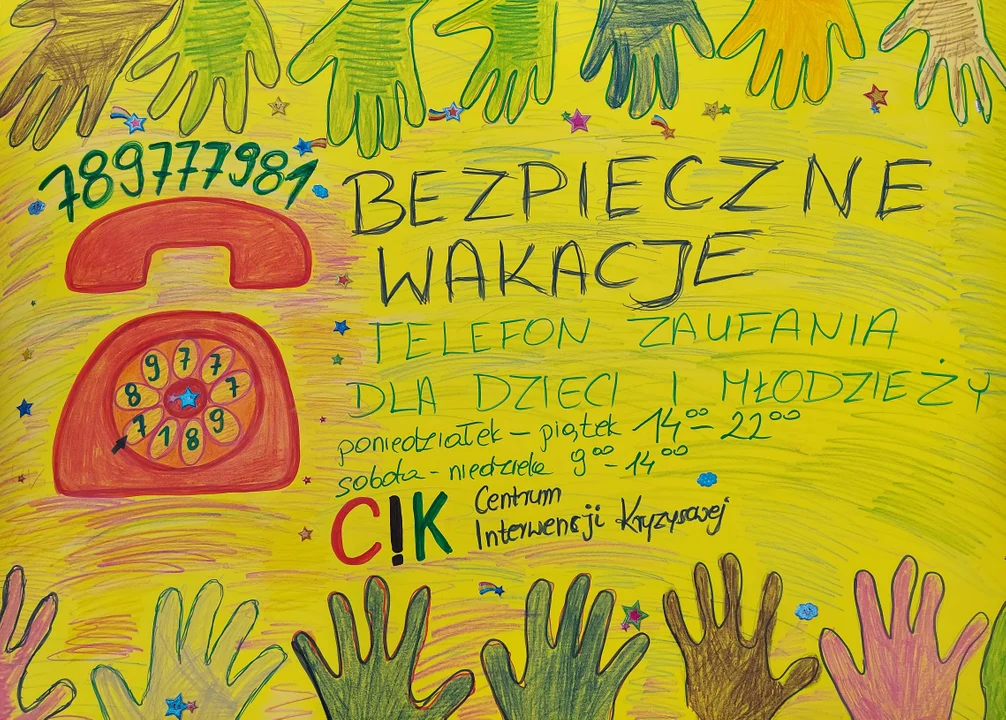 789777981
BEZPIECZNE
WAKACJE
TELEFON ZAUFANIA
DLA DZIECI I MŁODZIEŻY
poniedziałek - piątek 14⁰⁰ - 22⁰⁰
sobota - niedziela 9⁰⁰ - 14⁰⁰
C!K Centrum
Interwencji Kryzysowej
7 8 9 7 7 7 9 8 1